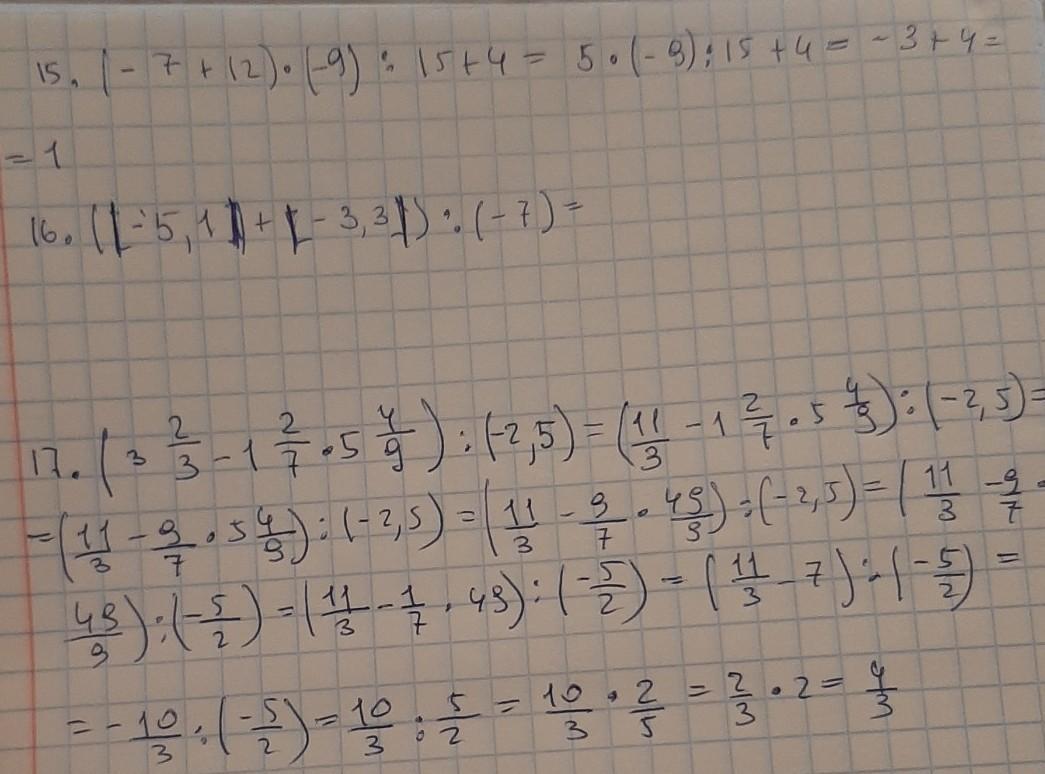 15. (-7+12)·(-9):15+4= 5·(-9):15+4= -3+4=
=1
16. (|-5,1|)+|-3,3|):(-7)=
17. (3 2/3 - 1 2/7 · 5 4/9):(-2,5)=(11/3 - 1 2/7 · 5 4/9):(-2,5)=
=(11/3 - 9/7 · 5 4/9):(-2,5)=(11/3 - 9/7 · 49/9):(-2,5)=(11/3 - 9/7 ·
49/9):(-5/2)=(11/3 - 1/7 · 49):(-5/2)=(11/3 - 7):(-5/2)=
=-10/3:(-5/2)=10/3:5/2=10/3 · 2/5=2/3 · 2=4/3